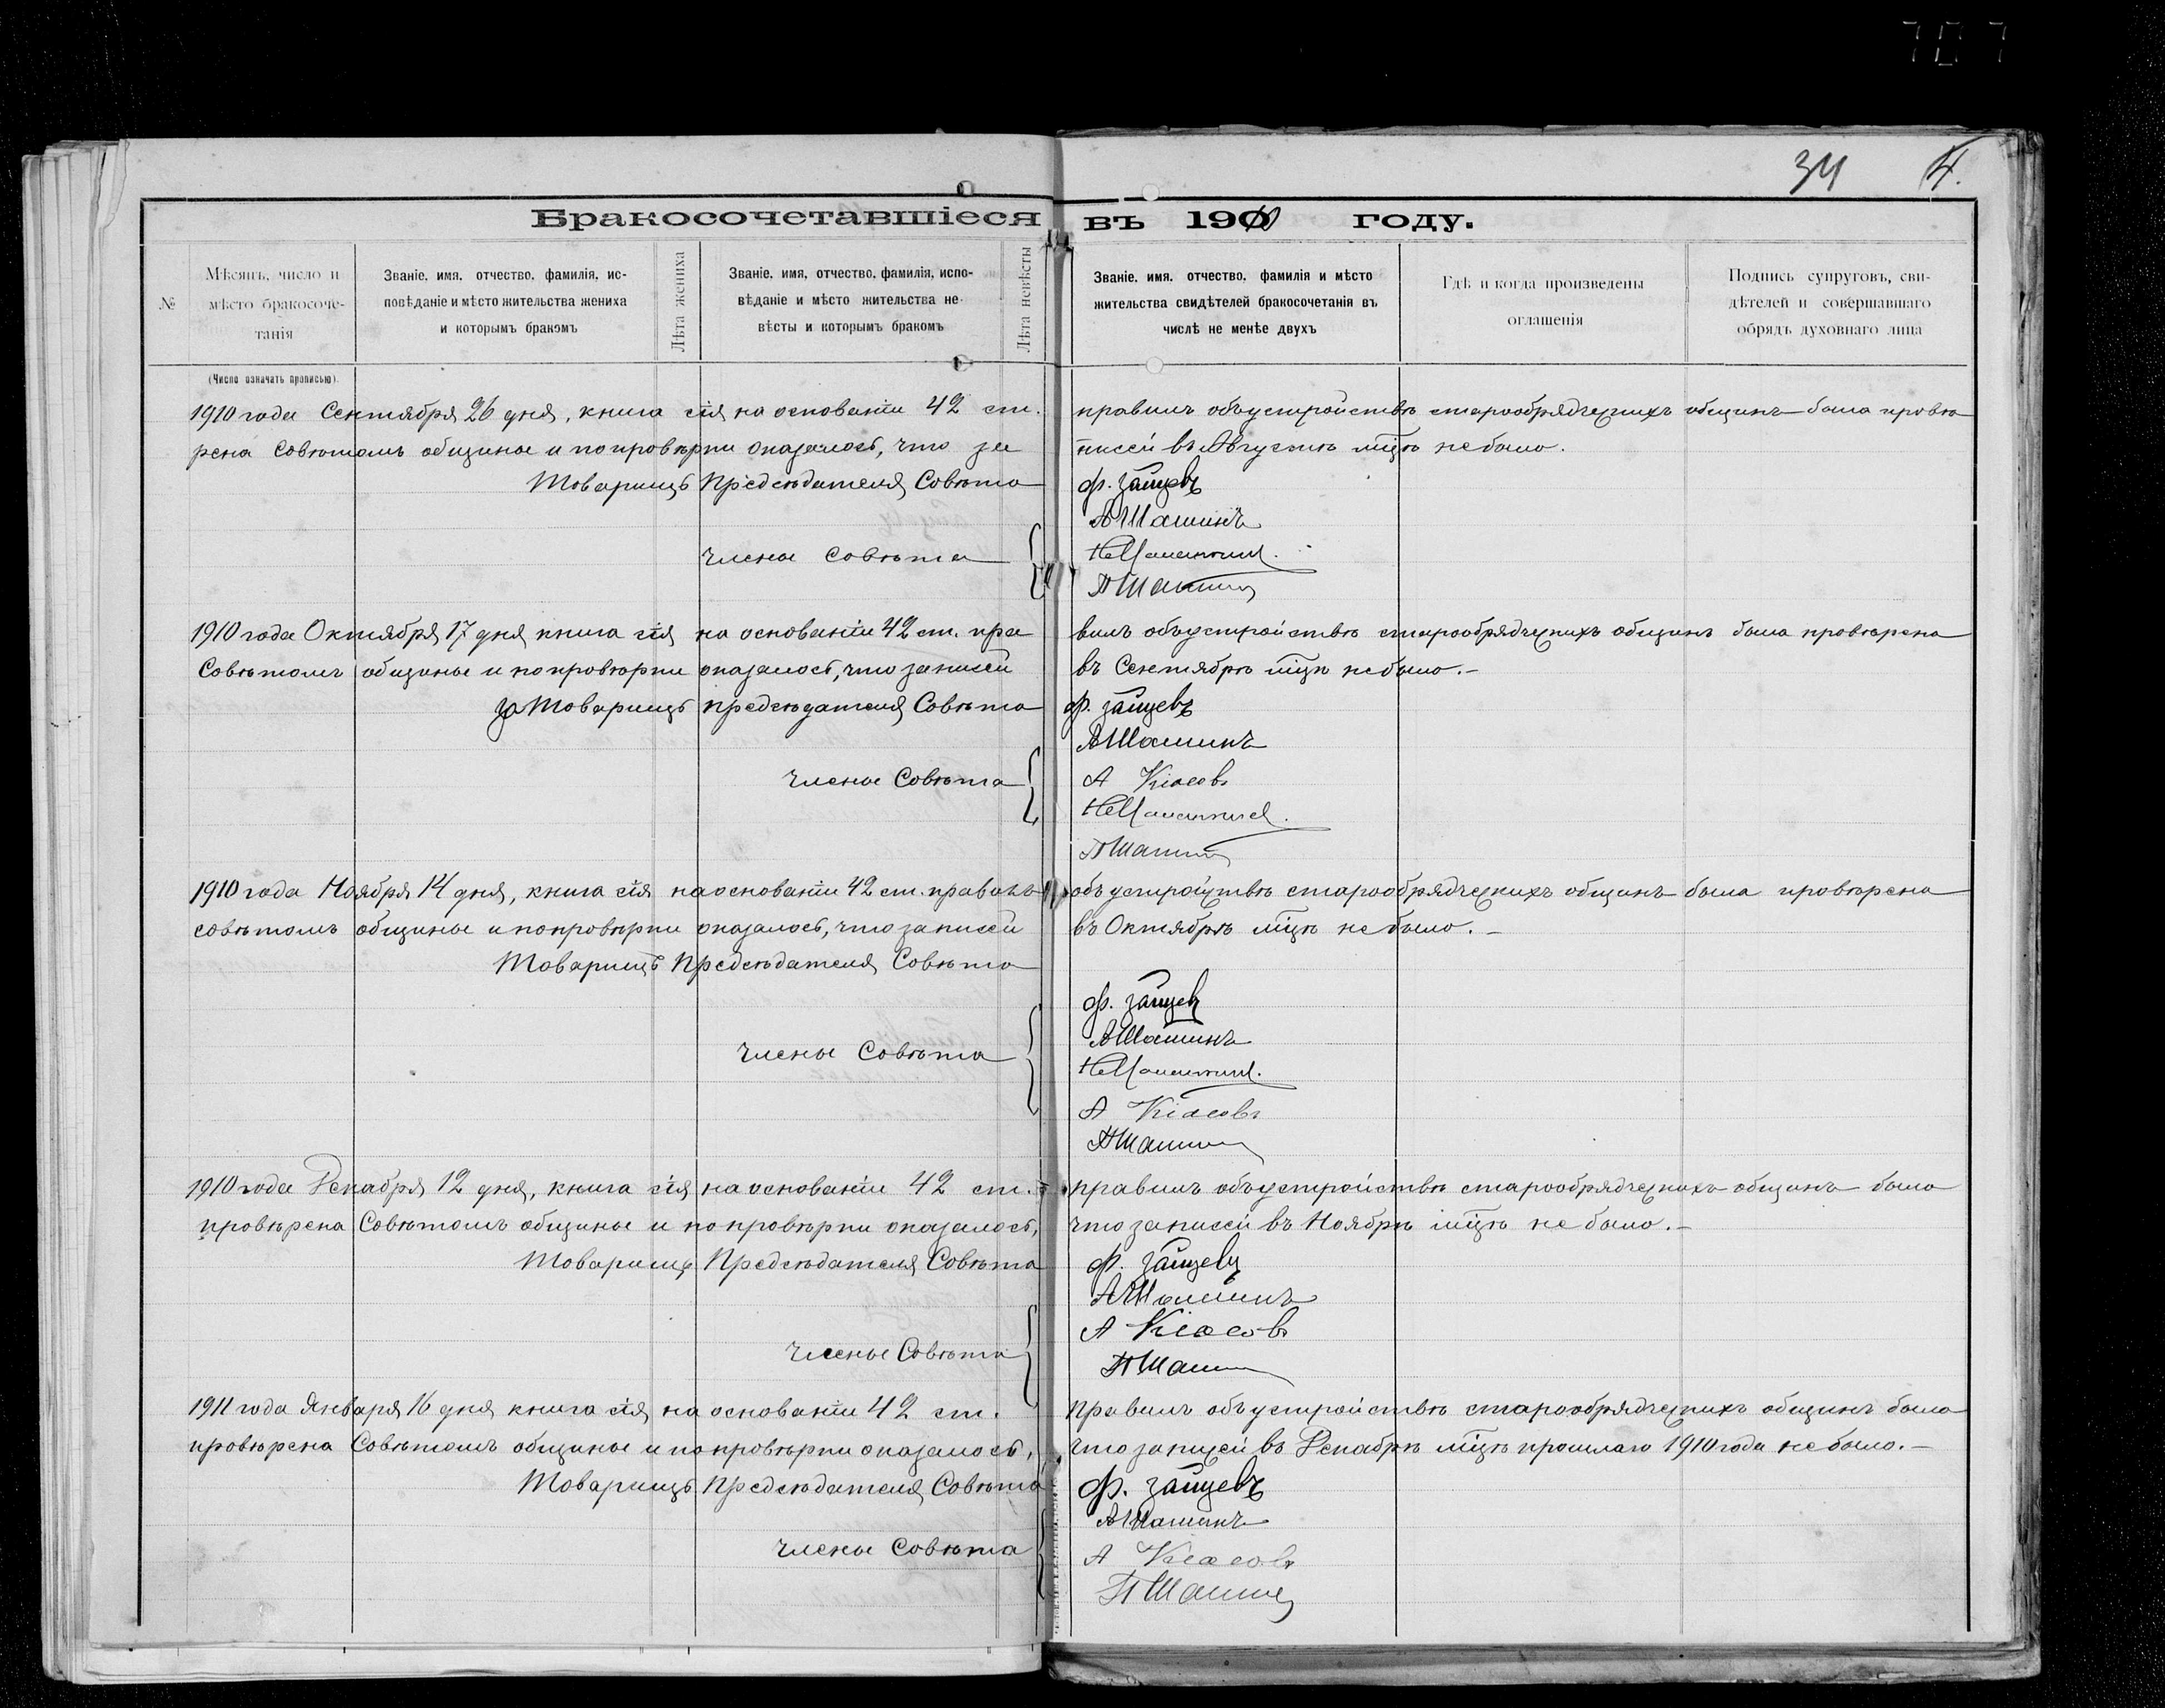 34 4.
Бракосочетавшіеся въ 1910 году.
№
Мѣсяцъ, число и мѣсто бракосочетанія
Званіе, имя, отчество, фамилія, исповѣданіе и мѣсто жительства жениха и которымъ бракомъ
Лѣта жениха
Званіе, имя, отчество, фамилія, исповѣданіе и мѣсто жительства невѣсты и которымъ бракомъ
Лѣта невѣсты
Званіе, имя, отчество, фамилія и мѣсто жительства свидѣтелей бракосочетанія въ числѣ не менѣе двухъ
Гдѣ и когда произведены оглашенія
Подпись супруговъ, свидѣтелей и совершавшаго обрядъ духовнаго лица
(Число означать прописью)
1910 года Сентября 26 дня, книга сія на основаніи 42 ст. правилъ объ устройствѣ старообрядческихъ общинъ была провѣ
рена Совѣтомъ общины и по провѣрки оказалось, что за писей въ Августѣ мцѣ не было.
Товарищъ Предсѣдателя Совѣта Ф. Зайцевъ
А Шашинъ
Члены Совѣта
П Шашин
1910 года Октября 17 дня книга сія на основаніи 42 ст. пра вилъ объ устройствѣ старообрядческихъ общинъ была провѣрена
Совѣтомъ общины и по провѣрки оказалось, что записей въ Сентябрѣ мцѣ не было.-
За Товарищъ предсѣдателя Совѣта Ф. Зайцевъ
А Шашинъ
Члены Совѣта А Кіасовъ
П Шашин
1910 года Ноября 14 дня, книга сія на основаніи 42 ст. правилъ объ устройствѣ старообрядческихъ общинъ была провѣрена
совѣтомъ общины и по провѣрки оказалось, что записей въ Октябрѣ мцѣ не было.-
Товарищъ Предсѣдателя Совѣта
Ф. Зайцевъ
А Шашинъ
Члены Совѣта
А Кіасовъ
П Шашин
1910 года Декабря 12 дня, книга сія на основаніи 42 ст. правилъ объ устройствѣ старообрядческихъ общинъ была
провѣрена Совѣтомъ общины и по провѣрки оказалось, что записей въ Ноябрѣ мцѣ не было.-
Товарищъ Предсѣдателя Совѣта Ф. Зайцевъ
А Шашинъ
А Кіасовъ
Члены Совѣта П Шашин
1911 года Января 16 дня книга сія на основаніи 42 ст. правилъ объ устройствѣ старообрядческихъ общинъ была
провѣрена Совѣтомъ общины и по провѣрки оказалось, что записей въ Декабрѣ мцѣ прошлаго 1910 года не было.-
Товарищъ Предсѣдателя Совѣта Ф. Зайцевъ
А Шашинъ
Члены Совѣта А Кіасовъ
П Шашин